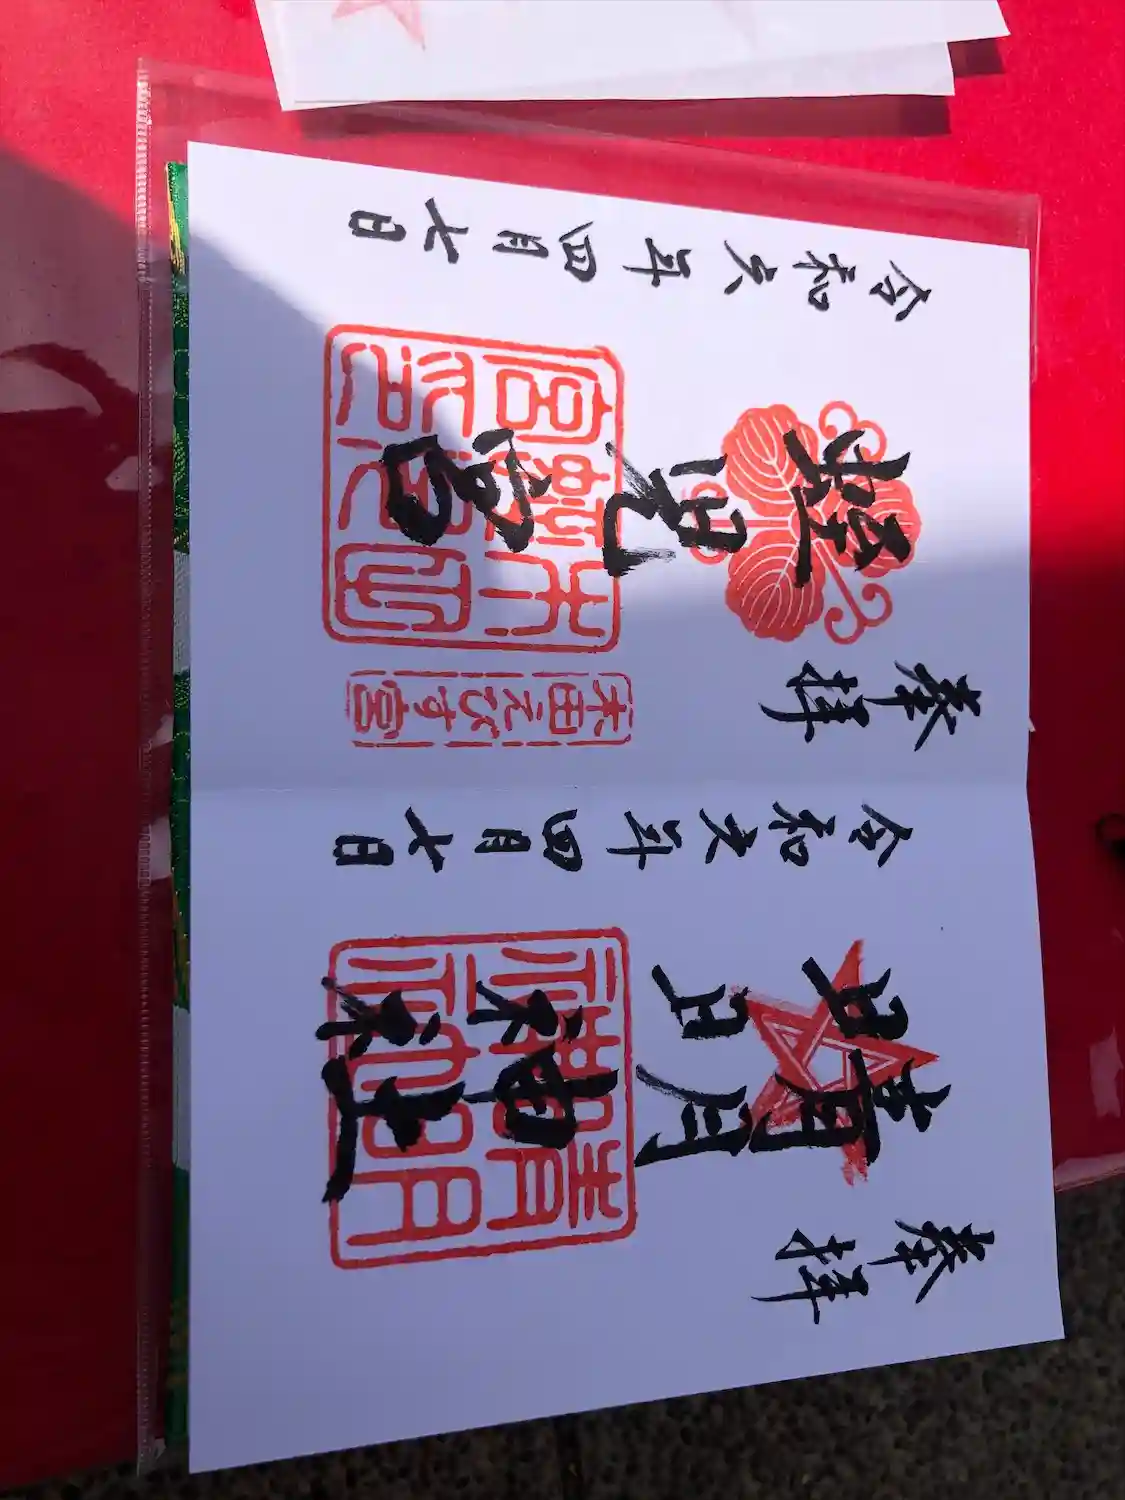 奉拝
晴明
神社
晴明神社
令和六年四月七日
奉拝
蛭児
宮
えびす宮
令和六年四月七日